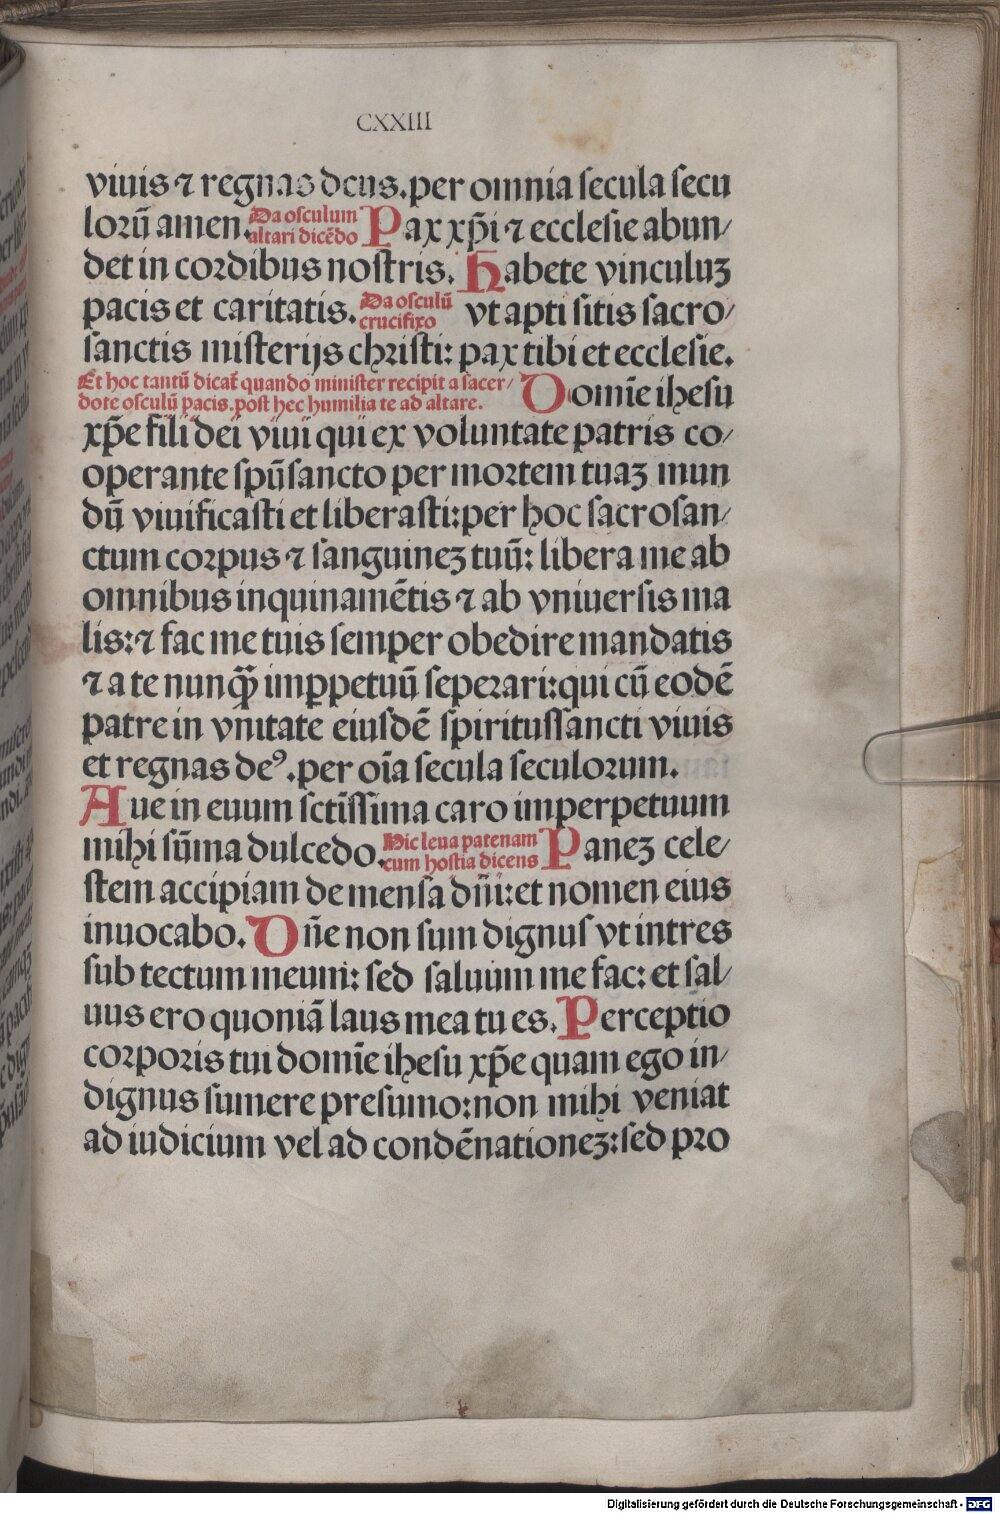 CXXIII
viuis ⁊ regnas deus. per omnia secula secu
lorū amen. Da osculum altari dicēdo Pax xp̄i ⁊ ecclesie abun/
det in cordibus nostris. Habete vinculuꝫ
pacis et caritatis. Da osculū crucifixo vt apti sitis sacro/
sanctis misterijs christi: pax tibi et ecclesie.
Et hoc tantū dicat᷑ quando minister recipit a sacer/
dote osculū pacis. post hec humilia te ad altare. Domīe ihesu
xp̄e fili dei viui qui ex voluntate patris co/
operante spū sancto per mortem tuaꝫ mun
dū viuificasti et liberasti: per hoc sacrosan/
ctum corpus ⁊ sanguineꝫ tuū: libera me ab
omnibus inquinamētis ⁊ ab vniuersis ma
lis: ⁊ fac me tuis semper obedire mandatis
⁊ a te nunqꝫ̃ imꝑpetuū seperari: qui cū eodē
patre in vnitate eiusdē spiritussancti viuis
et regnas deꝰ. per oīa secula seculorum.
Aue in euum sctīssima caro imperpetuum
mihi sūma dulcedo. Hic leua patenam cum hostia dicens Paneꝫ cele/
stem accipiam de mensa dn̄i: et nomen eius
inuocabo. Dn̄e non sum dignus vt intres
sub tectum meum: sed saluum me fac: et sal/
uus ero quoniā laus mea tu es. Perceptio
corporis tui domīe ihesu xp̄e quam ego in/
dignus sumere presumo: non mihi veniat
ad iudicium vel ad condēnationeꝫ: sed pro
Digitalisierung gefördert durch die Deutsche Forschungsgemeinschaft - DFG